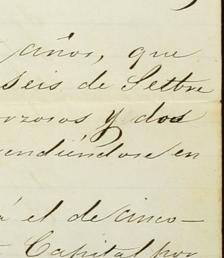 años, que
seis de Setbre
orzosos y dos
endiéndose en
á el de cinco—
Capital por